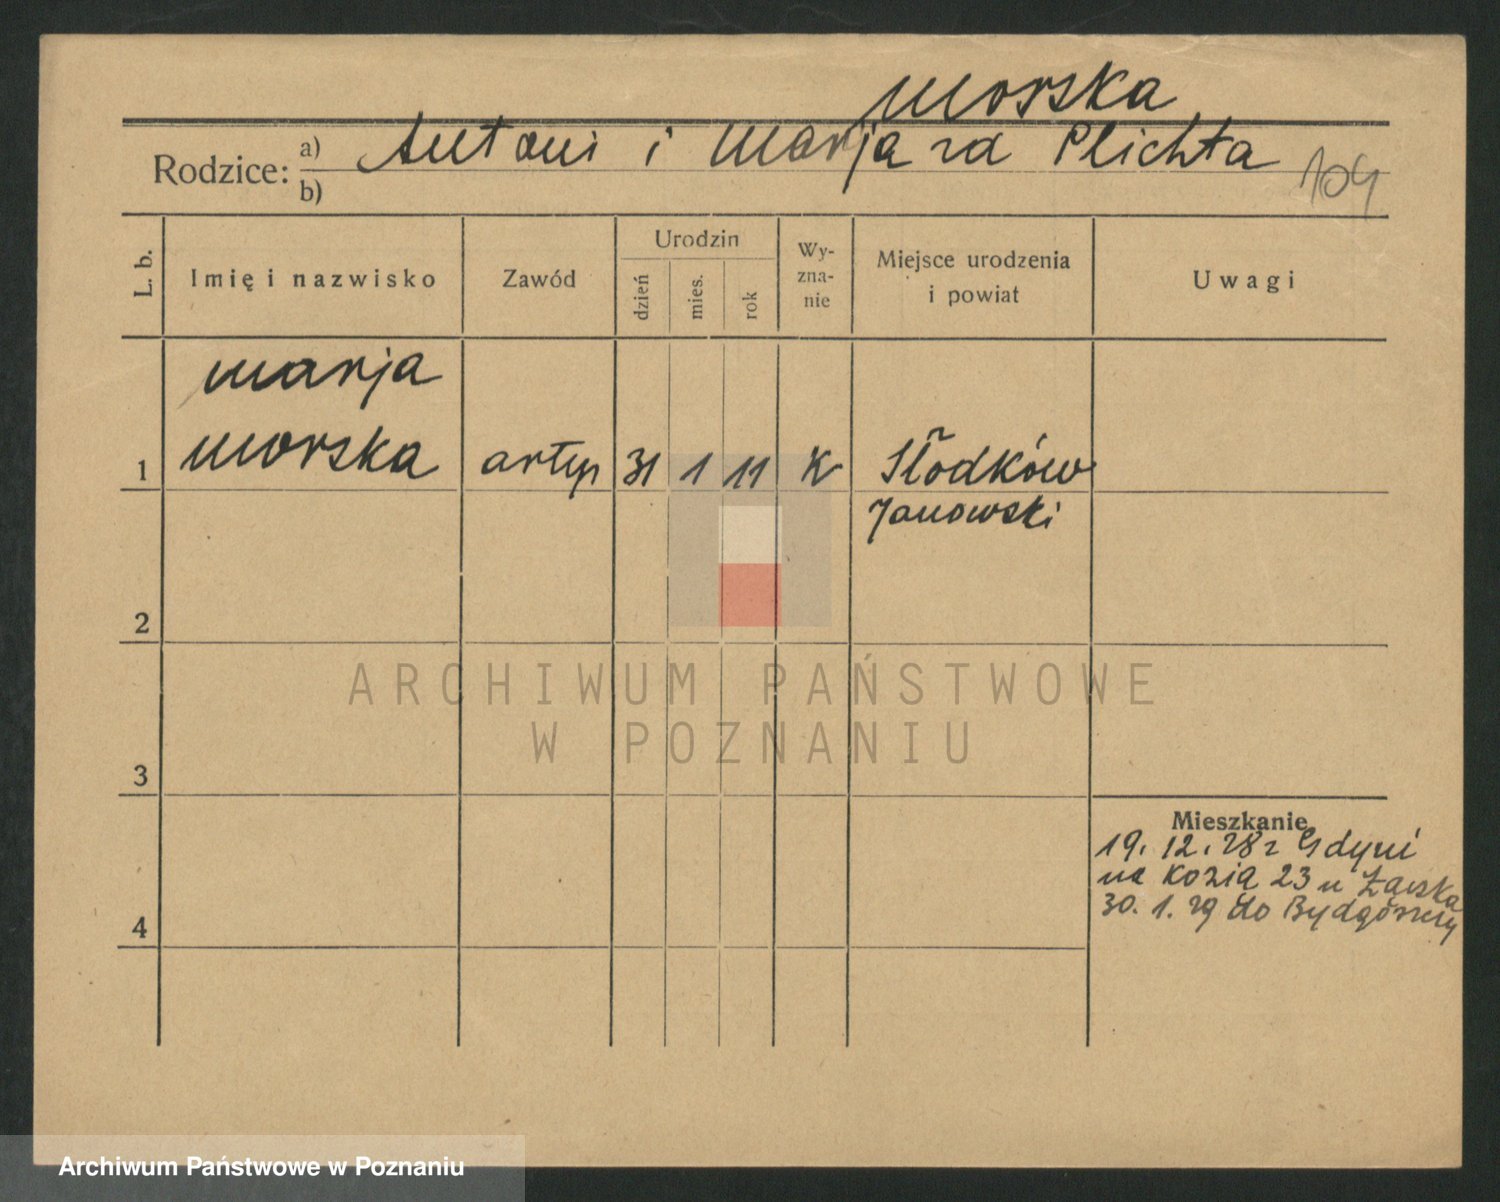 Morska
Rodzice: a) Antoni i Marja zd Plichta
b)
104
L. b. Imię i nazwisko Zawód Urodzin dzień mies. rok Wy-zna-nie Miejsce urodzenia i powiat Uwagi
Marja
1 Morska artys 31 1 11 K Słodków
Janowski
2
ARCHIWUM PAŃSTWOWE
W POZNANIU
3
Mieszkanie
19. 12. 28 z Gdyni
na Kozia 23 u
30. 1. 29 do Bydgoszczy
4
Archiwum Państwowe w Poznaniu